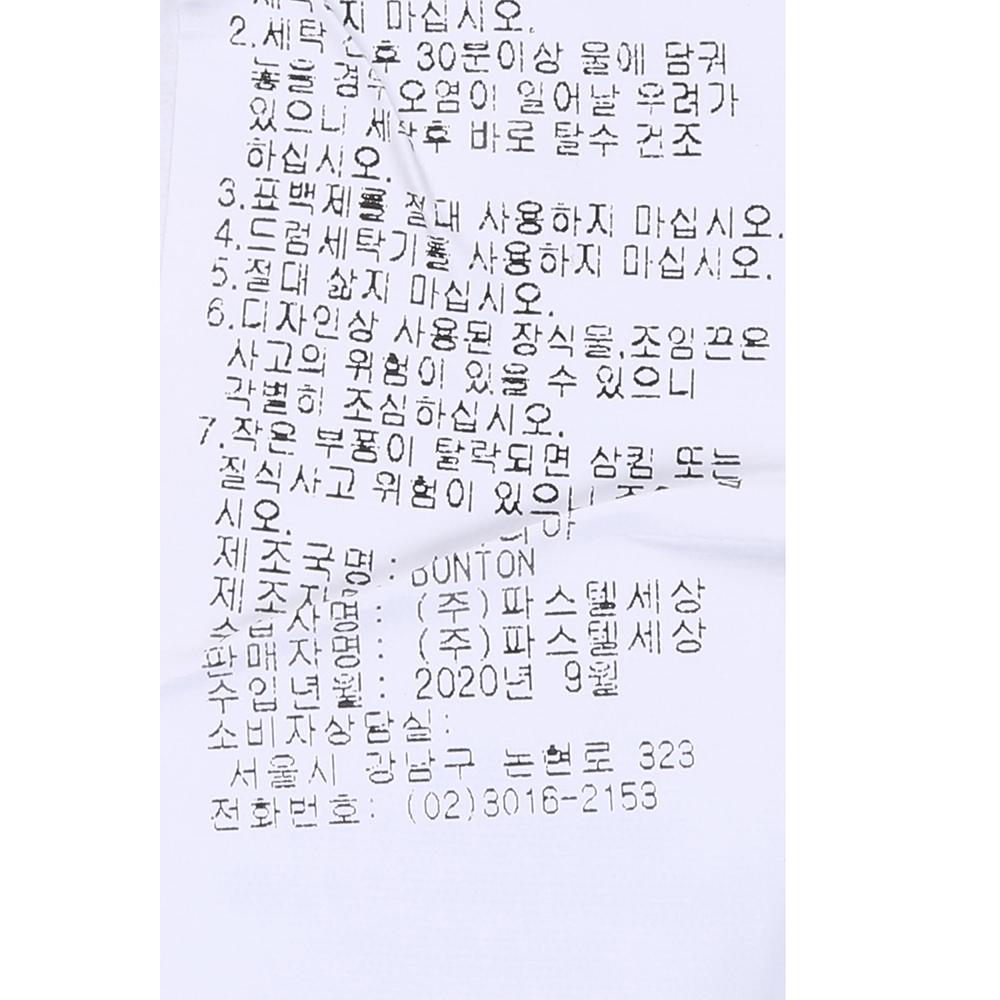 지 마십시오.
2.세탁 전후 30분이상 물에 담궈
놓을 경우 오염이 일어날 우려가
있으니 세탁후 바로 탈수 건조
하십시오.
3.표백제를 절대 사용하지 마십시오.
4.드럼세탁기를 사용하지 마십시오.
5.절대 삶지 마십시오.
6.디자인상 사용된 장식물,조임끈은
사고의 위험이 있을 수 있으니
각별히 조심하십시오.
7.작은 부품이 탈락되면 삼킴 또는
질식사고 위험이 있으니
시오.
제조국명:
제조자명: BONTON
수입자명: (주)파스텔세상
판매자명: (주)파스텔세상
수입년월: 2020년 9월
소비자상담실:
서울시 강남구 논현로 323
전화번호: (02)3016-2153